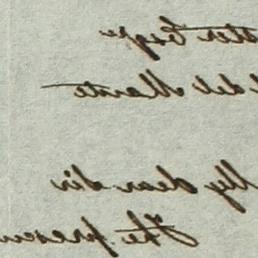 Esqre
del Monte
My dear Sir
The presen